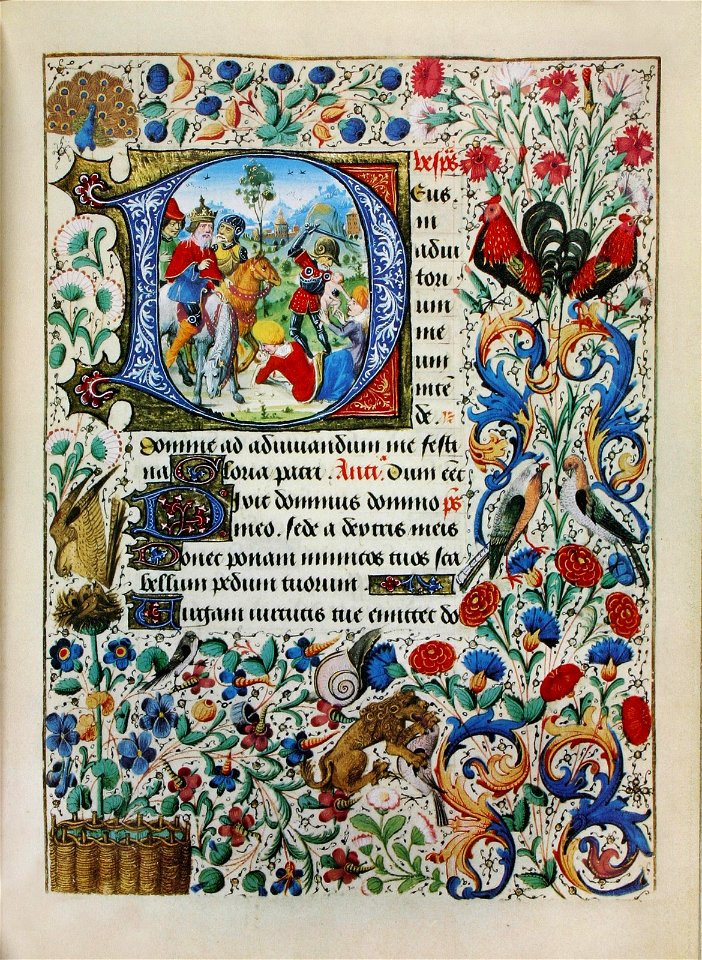 DEus.
in
adiu
tori
um
me
um
inte
de. 
Domine ad adiuuandum me festi
na Gloria patri. Anti. Dum eet
Dixit dominus domino ps
meo. sede a dextris meis
Donec ponam inimicos tuos sca
bellum pedum tuorum
Virgam uirtutis tue emittet do